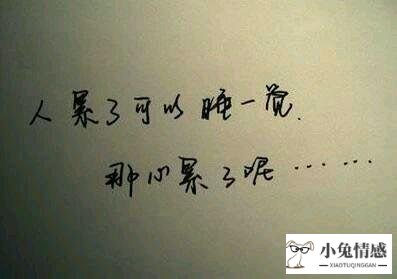 人累了可以睡一觉.
那心累了呢……
小兔情感
XIAOTUQINGGAN